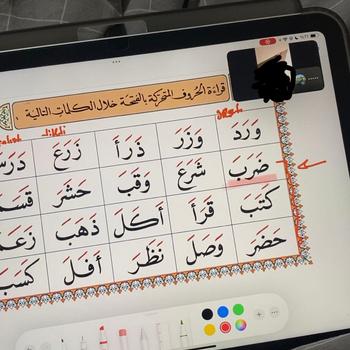 قِرَاءَةُ الحُرُوفِ المتَحَرِّكَةِ بِالفَتْحَةِ خِلَالَ الكَلِمَاتِ التَّالِيَةِ
وَرَدَ وَزَرَ ذَرَأَ زَرَعَ دَرَسَ
ضَرَبَ شَرَعَ وَقَبَ حَشَرَ
كَتَبَ قَرَأَ أَكَلَ ذَهَبَ
حَضَرَ وَصَلَ نَظَرَ أَفَلَ كَسَبَ